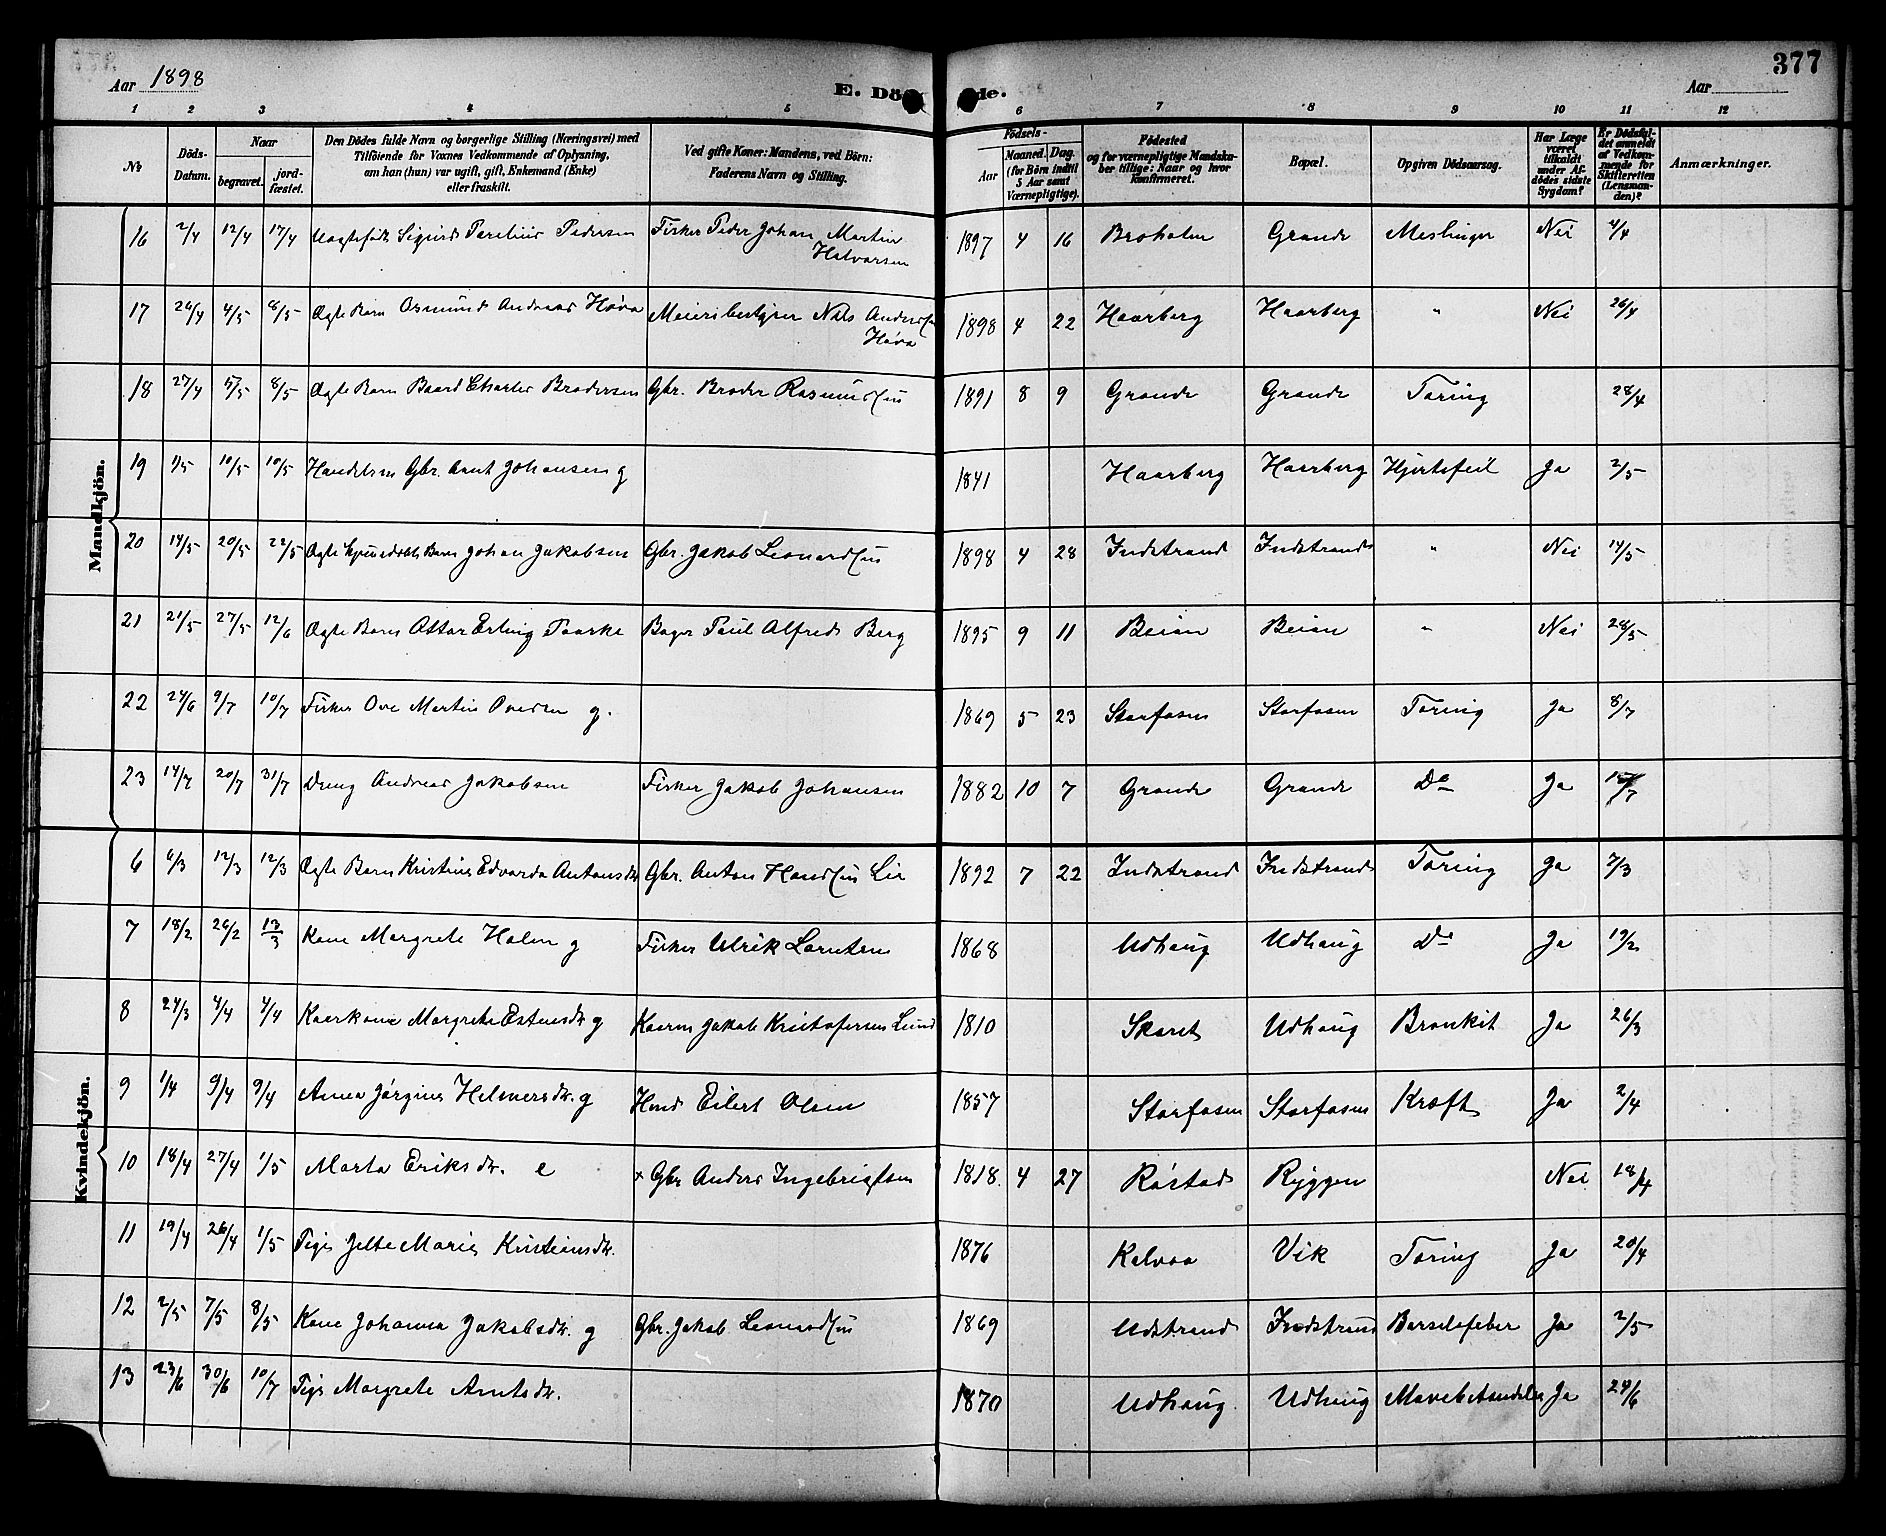 377
Aar 1898
E. Dö de.
Aar
1 2 3 4 5 6 7 8 9 10 11 12
No
Döds-Datum.
Naar
begravet.
jord-fæstet.
Den Dödes fulde Navn og borgerlige Stilling (Næringsvei) med Tilföiende for Voxnes Vedkommende af Oplysning, om han (hun) var ugift, gift, Enkemand (Enke) eller fraskilt.
Ved gifte Koner: Mandens, ved Börn: Faderens Navn og Stilling.
Födsels-
Aar
Maaned. Dag.
(for Börn indtil 5 Aar samt Værnepligtige).
Födested og for værnepligtige Mandskaber tillige: Naar og hvor konfirmeret.
Bopæl.
Opgiven Dödsaarsag.
Har Læge været tilkaldt under Afdödes sidste Sygdom?
Er Dödsfaldet anmeldt af Vedkommende for Skifteretten (Lensmanden)?
Anmærkninger.
Mandkjön.
16 2/4 12/4 17/4 Uægtefödt Sigurd Pareliùs Pedersen Fisker Peder Johan Martin Halvorsen 1897 4 16 Broholm Grande Meslinger Nei 4/4
17 26/4 4/5 8/5 Ægte Barn Osmund Andreas Høva Meieribestyrer Nils Andersen Høva 1898 4 22 Haarberg Haarberg " Nei 26/4
18 27/4 5/5 8/5 Ægte Barn Baard Charles Brodersen Gbr. Broder Rasmussen 1891 8 9 Grande Grande Tæring 28/4
19 1/5 10/5 10/5 Handelsm Gbr. Arnt Johansen g 1841 Haarberg Haarberg Hjertefeil Ja 2/5
20 14/5 20/5 22/5 Ægte hjemedöbt Barn Johan Jakobsen Gbr. Jakob Leonardsen 1898 4 28 Indstrand Indstrand " Nei 14/5
21 21/5 27/5 12/6 Ægte Barn Ottar Erling Paaske Bager Paul Alfred Berg 1895 9 11 Beian Beian " Nei 28/5
22 24/6 9/7 10/7 Fisker Ove Martin Ovesen g. 1869 5 23 Storfosen Storfosen Tæring Ja 8/7
23 14/7 20/7 31/7 Dreng Andreas Jakobsen Fisker Jakob Johansen 1882 10 7 Grande Grande Do Ja 15/7
Kvindekjön.
6 6/3 12/3 12/3 Ægte Barn Kristine Edvarda Antonsdr. Gbr. Anton Hansen Lie 1892 7 22 Indstrand Indstrand Tæring Ja 7/3
7 18/2 26/2 13/3 Kone Margrete Holm g Fisker Ulrik Larntsen 1868 Udhaug Udhaug Do Ja 19/2
8 24/3 4/4 4/4 Kaarkone Margrete Estensdr g Kaarm Jakob Kristofersen Lund 1810 Skaret Udhaug Bronkit Ja 26/3
9 1/4 9/4 9/4 Anna Jørgine Helmersdr. g Husm Eilert Olsen 1857 Storfosen Storfosen Kræft Ja 2/4
10 18/4 27/4 1/5 Marta Eriksdr. e x Gbr Anders Ingebrigtsen 1818. 4 27 Röstad Ryggen Nei 18/4
11 19/4 26/4 1/5 Pige Jette Marie Kristiansdr. 1876 Kalvaa Vik Tæring Ja 20/4
12 2/5 7/5 8/5 Kone Johanna Jakobsdr. g Gbr. Jakob Leonardsen 1869 Udstrand Indstrand Barselsfeber Ja 2/5
13 23/6 30/6 10/7 Pige Margrete Arntsdr. 1870 Udhaug. Udhaug Mavebetændelse Ja 24/6